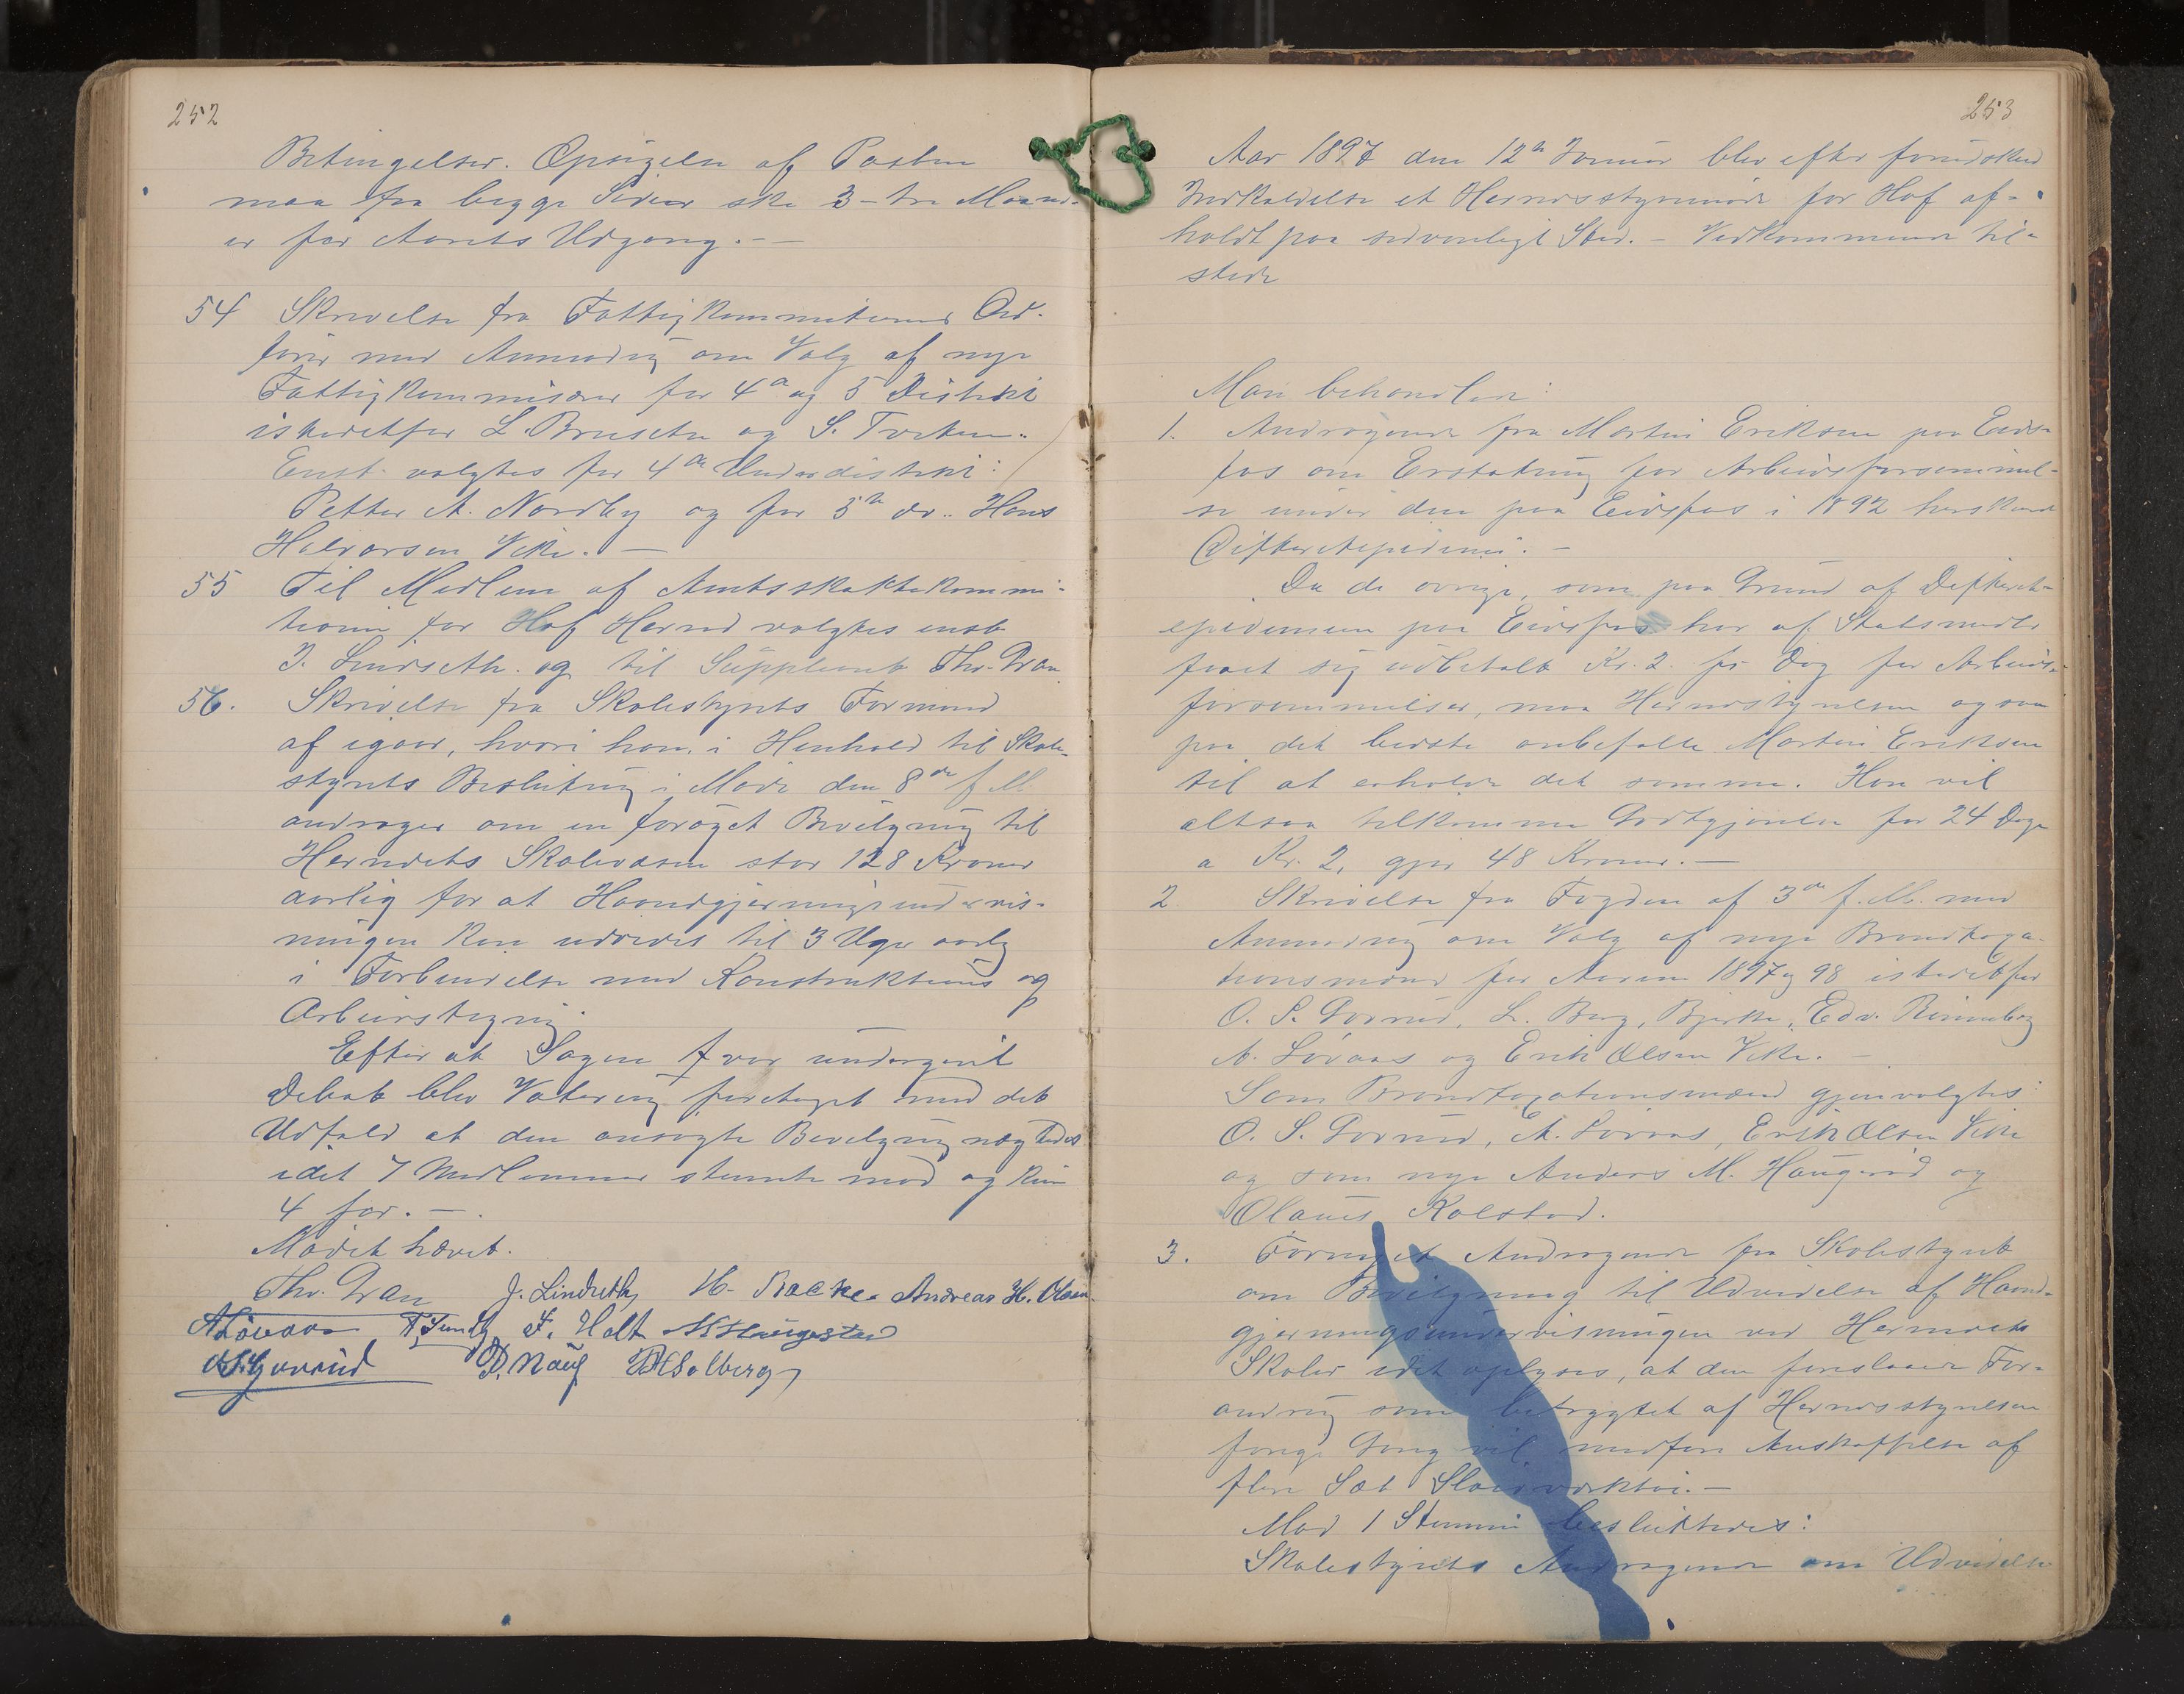 252
Betingelser. Opsigelse af Posten
maa fra begge Sider ske 3-tre Maaned-
er før Aarets Udgang. -
54 Skrivelse fra Fattigkommitionens Ord-
fører med Anmodnig om Valg af nye
Fattigkommisærer for 4de og 5 Distrikt
istedetfor L. Bruseth og S. Tveten.
Enst. valgtes for 4de Underdistrikt:
Petter A. Nordby og for 5te do. Hans
Halvorsen Vike. -
55 Til Medlem af Amtsskattekommi-
tionen for Hof Herred valgtes enst.
J. Lindseth. og til Supplemt Thv. Gran.
56. Skrivelse fra Skolestyrets Formand
af igaar, hvori han i Henhold til Skole-
styrets Beslutnig i Møde den 8de f. M.
andrager om en forøget Bevilgnig til
Herredets Skolevæsen stor 128 Kroner
aarlig for at Haandgjerningsundervis-
ningen kan udvides til 3 Uger aarlg
i Forbindelse med Konstruktions og
Arbeidstegnig.
Efter at Sagen var undergivet
Debat blev Votering foretaget med det
Udfald at den ansøgte Bevilgnig nægtedes
idet 7 Medlemmer stemte mod og kun
4 for. -
Mødet hævet.
Thv. Gran J. Lindseth H. Backe Andreas H. Olsen
A Løvaas F. Holt Haugestad
OSGovrud P. Solberg
253
Aar 1897 den 12te Januar blev efter forudskeed
Indkaldelse et Herredsstyremøde for Hof af-
holdt paa sedvanligt Sted. - Vedkommende til-
stede
Man behandlede:
1. Andragende fra Martin Eriksen paa Eids-
fos om Erstatning for Arbeidsforsømmel-
se under den paa Eidsfos i 1892 herskende
Difteritepidemi. -
Da de øvrige, som paa Grund af Difterit-
epidemien paa Eidsfos har af Statsmidler
faaet sig udbetalt Kr. 2. pr Dag for Arbeids-
forsømmelser, maa Herredsstyrelsen ogsaa
paa det bedste anbefalle Martin Eriksen
til at erholde det samme. Han vil
altsaa tilkomme Godtgjørelse for 24 Dage
a Kr. 2, gjør 48 Kroner. -
2 Skrivelse fra Fogden af 3de f. M. med
Anmodnig om Valg af nye Brandtaxa-
tionsmænd for Aarene 1897 og 98 istedetfor
O. S. Govrud, L. Berg, Bjerke, Edv. Rønneberg
A. Løvaas og Erik Olsen Vike. -
Som Brandtaxationsmænd gjenvalgtes
O. S. Govrud, A. Løvaas, Erik Olsen Vike
og som nye Anders M. Haugerud og
Olaus Kolstad.
3. Fornyet Andragende fra Skolestyret
om Bevilgning til Udvidelse af Haand-
gjerningsundervisningen ved Herredets
Skoler idet oplyses, at den foreslaaede For-
andrig som betrygtet af Herredsstyrelsen
forige Gang vil medføre Anskaffelse af
flere Sæt Sløidverktøi. -
Mod 1 Stemme besluttedes:
Skolestyrets Andragende om Udvidelse